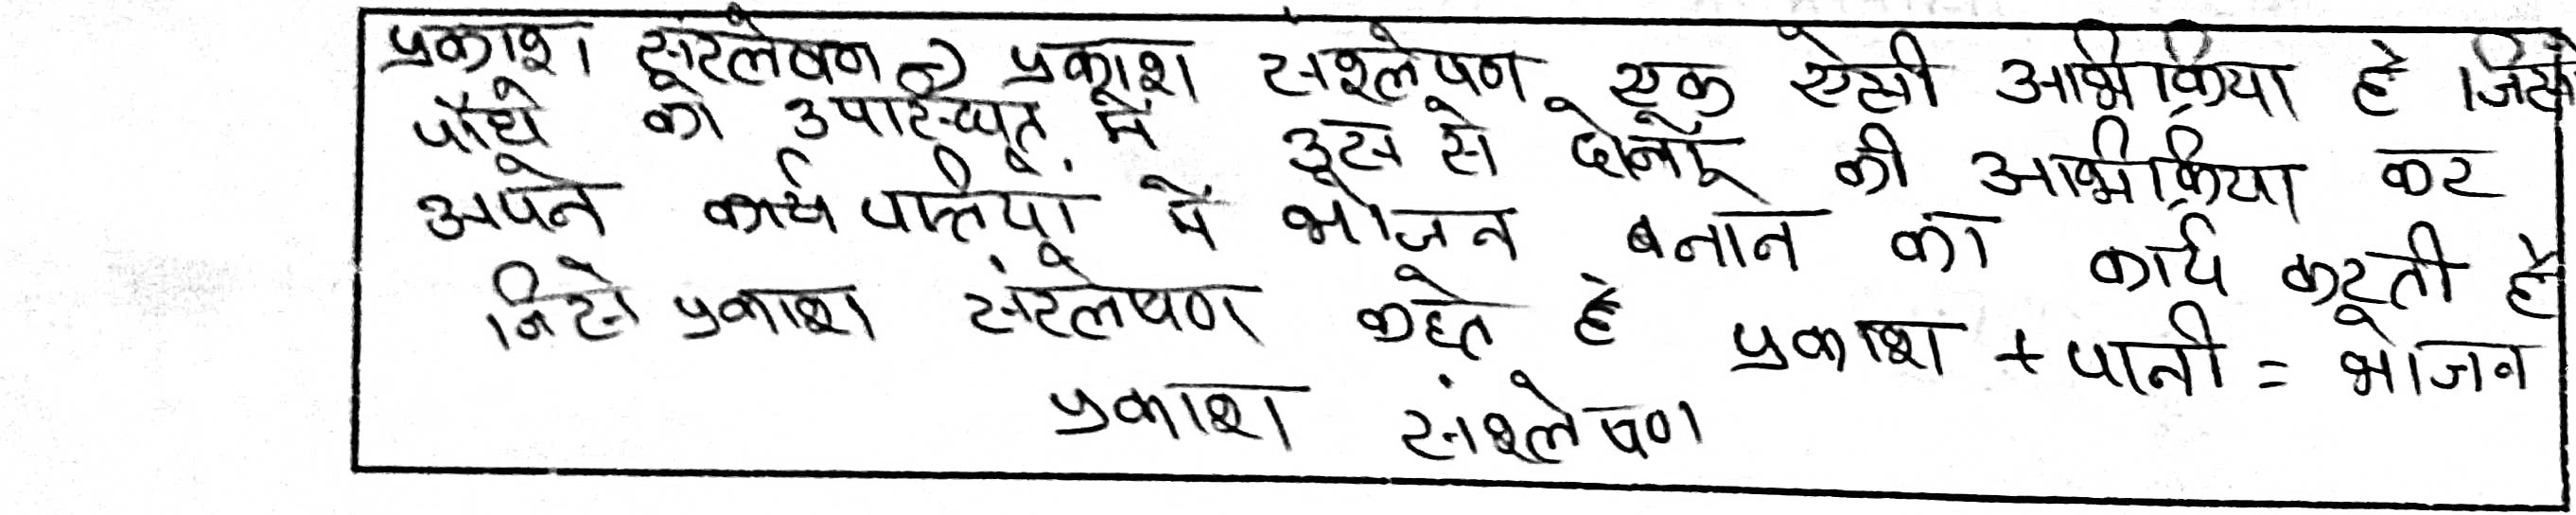 प्रकाश संश्लेषण => प्रकाश संश्लेषण एक ऐसी अभिक्रिया है जिसमें
पौधे की उपस्थित में उस से दोनों की अभिक्रिया कर
अपने कार्य पत्तियों में भोजन बनाने का कार्य करती है
जिसे प्रकाश संश्लेषण कहते है प्रकाश + पानी = भोजन
प्रकाश संश्लेषण